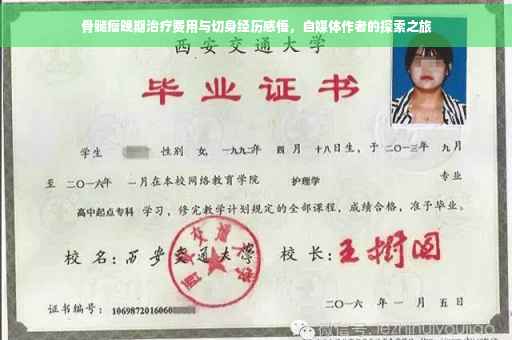 骨髓瘤晚期治疗费用与切身经历感悟，自媒体作者的探索之旅
西安交通大学
毕业证书
学生 性别 女，一九九二年 四月 十八日生，于二〇一三年 九月
至 二〇一六年 一月在本校网络教育学院 护理学 专业
高中起点专科 学习，修完教学计划规定的全部课程，成绩合格，准予毕业。
校 名：西安交通大学 校 长：王树国
西安交通大学
证书编号：1069872016060
二〇一六 年 一 月 五 日
微信号: jezhihuiyoujiao